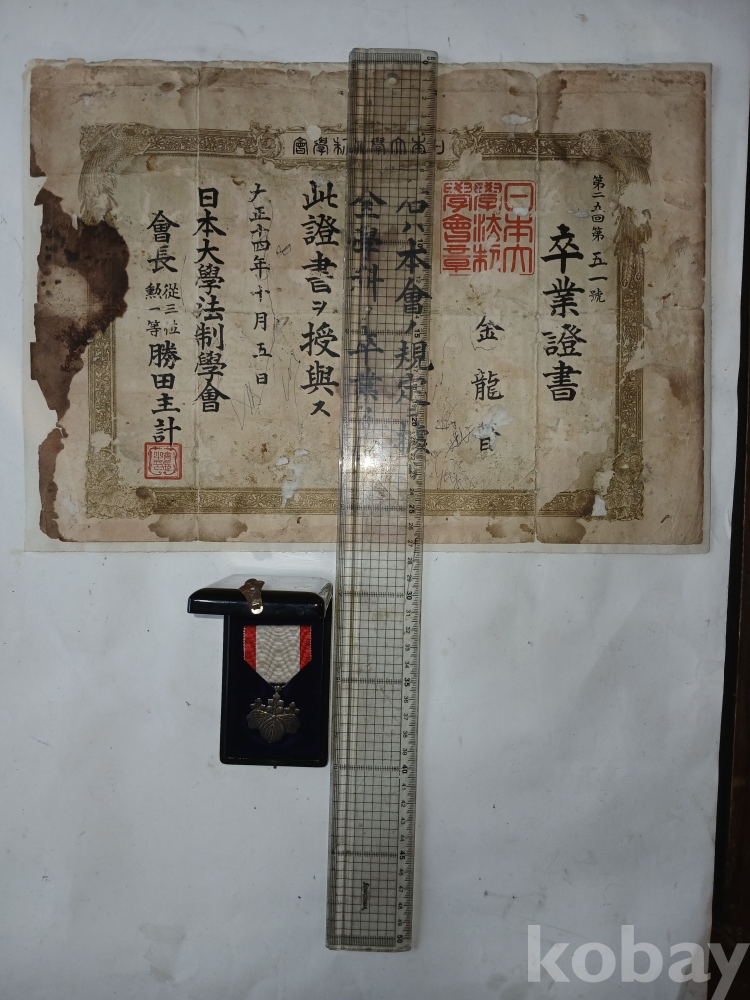 日本大學法制學會
第二五回第五一號
卒業證書
金龍
日本大學法制學會章
右ハ本會ノ規定ニ據
全學科ノ卒業
此證書ヲ授與ス
大正十四年十月五日
日本大學法制學會
會長 從三位 勲一等 勝田主計
kobay